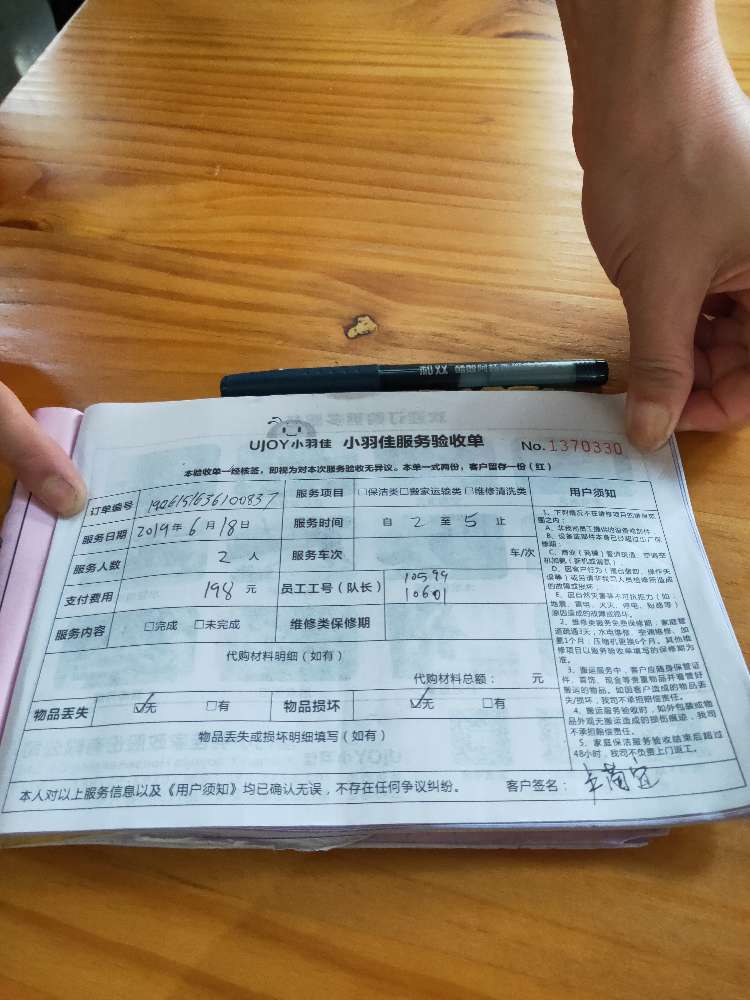 UJOY小羽佳 小羽佳服务验收单 No.1370330
本验收单一经核签，即视为对本次服务验收无异议。本单一式两份，客户留存一份（红）
订单编号 服务项目 □保洁类□搬家运输类□维修清洗类 用户须知
服务日期 2019年6月18日 服务时间 自 2 至 5 止
服务人数 2 人 服务车次 车/次
支付费用 198 元 员工工号（队长） 10599
10601
服务内容 □完成 □未完成 维修类保修期
代购材料明细（如有）
代购材料总额： 元
物品丢失 ☑无 □有 物品损坏 ☑无 □有
物品丢失或损坏明细填写（如有）
本人对以上服务信息以及《用户须知》均已确认无误，不存在任何争议纠纷。 客户签名：
2、维修类服务免费保修期：家庭管
道疏通3天，水电维修、空调维修、加
氟1个月；压缩机更换6个月。其他维
修项目以服务验收单填写的保修期为
准。
3、搬运服务中，客户应随身保管证
件、首饰、现金等贵重物品并看管好
搬运的物品。如因客户造成的物品丢
失/损坏，我司不承担赔偿责任。
4、搬运服务验收时，如外包装或物
品外观无搬运造成的损伤痕迹，我司
不承担赔偿责任。
5、家庭保洁服务验收结束后超过
48小时，我司不负责上门返工。